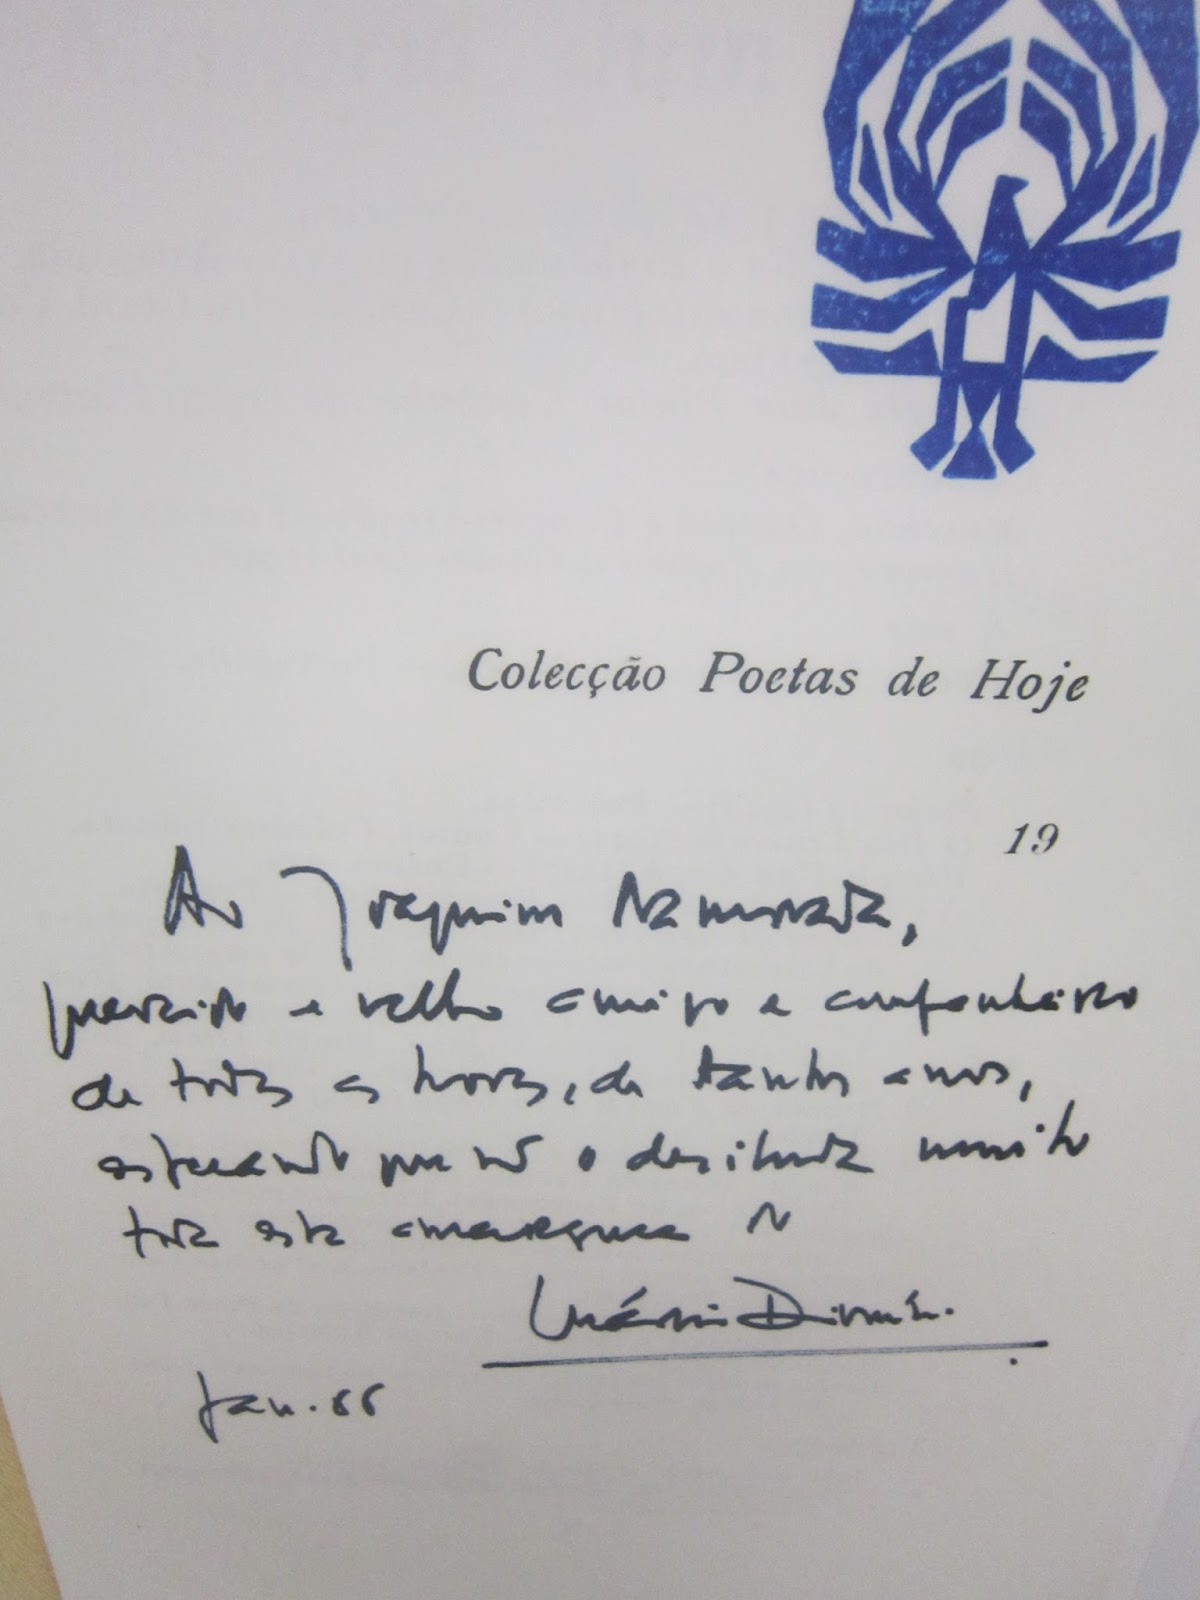 Colecção Poetas de Hoje
19
Ao Joaquim Namorado,
querido e velho amigo e companheiro
de todas as horas, de tantos anos,
esperando que não o desiluda muito
toda esta amargura
Mário Dionísio.
Jan. 66